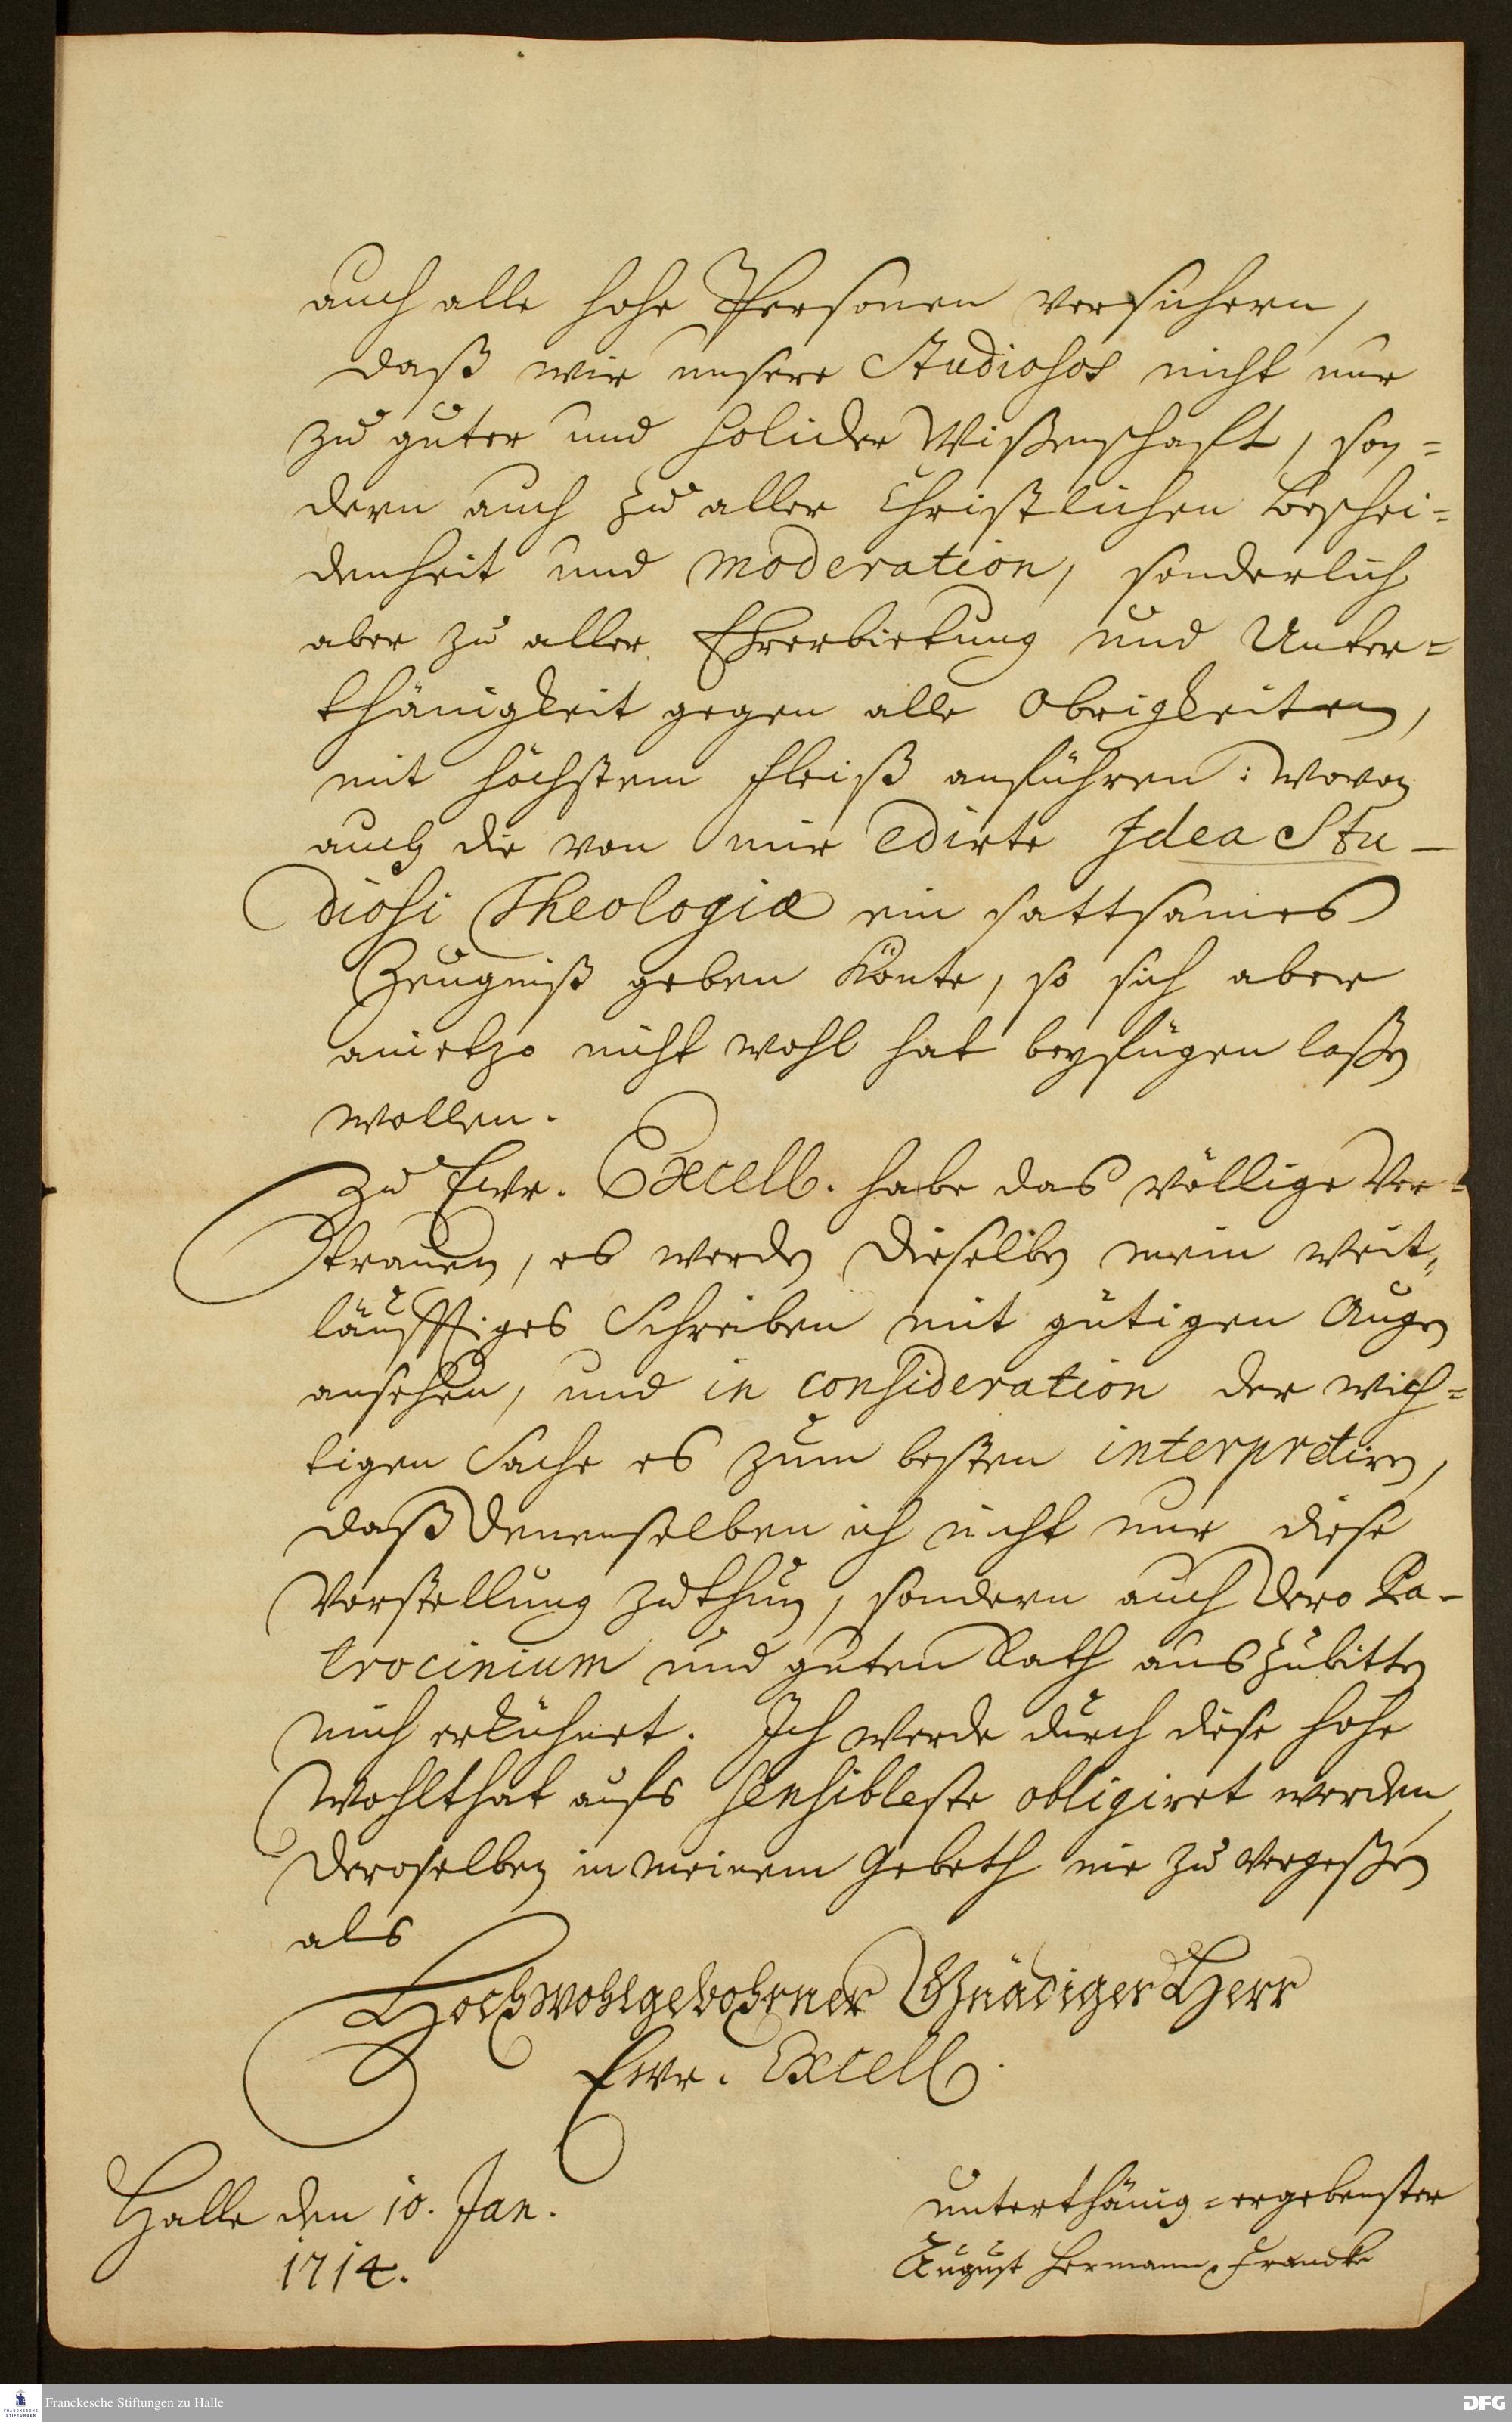 auch alle hohe Personen versichern,
daß wir unsere Studiosos nicht nur
zu guter und solider Wißenschafft, son=
dern auch zu aller Christlichen Beschei=
denheit und moderation, sonderlich
aber zu aller Ehrerbietung und Unter=
thänigkeit gegen alle Obrigkeiten,
mit höchstem Fleiß anführen: wovon
auch die von mir edirte Idea Stu-
diosi Theologiæ ein sattsames
Zeugniß geben könte, so sich aber
anietzo nicht wohl hat beyfügen laßen
wollen.
Zu Ewr. Excell. habe das völlige Ver=
trauen, es werden dieselben mein weit=
läufftiges Schreiben mit gütigen Augen
ansehen, und in consideration der wich=
tigen Sache es zum besten interpretiren,
daß denenselben ich nicht nur diese
Vorstellung zu thun, sondern auch dero Pa-
trocinium und guten Rath auszubitten
mich erkühnet. Ich werde durch diese hohe
Wohlthat aufs sensibleste obligiret werden,
deroselben in meinem Gebeth nie zu vergeßen
als
Hochwohlgebohrner Gnädiger Herr
Ewr. Excell.
Halle den 10. Jan.
1714.
unterthänig=ergebenster
August Hermann Francke
Franckesche Stiftungen zu Halle
DFG